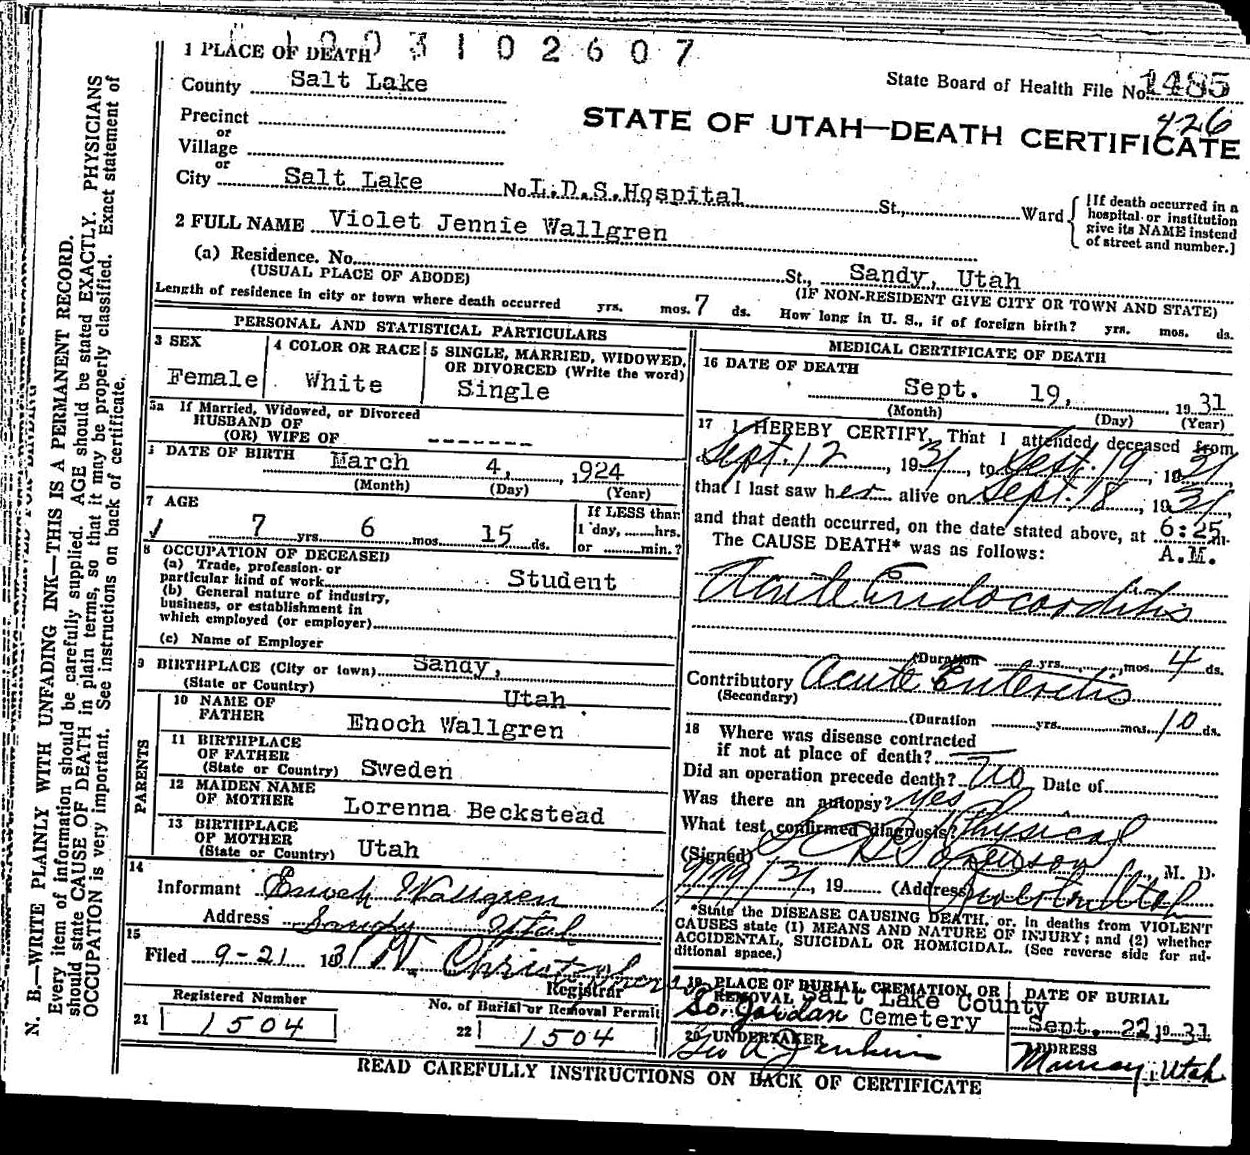 1 PLACE OF DEATH 1003102607
County Salt Lake
State Board of Health File No. 1485
426
Precinct
or
Village
or
STATE OF UTAH—DEATH CERTIFICATE
City Salt Lake No. L.D.S. Hospital St., Ward
[If death occurred in a hospital or institution give its NAME instead of street and number.]
2 FULL NAME Violet Jennie Wallgren
(a) Residence. No. St., Sandy, Utah
(USUAL PLACE OF ABODE) (IF NON-RESIDENT GIVE CITY OR TOWN AND STATE)
Length of residence in city or town where death occurred yrs. mos. 7 ds. How long in U. S., if of foreign birth? yrs. mos. ds.
PERSONAL AND STATISTICAL PARTICULARS
3 SEX Female
4 COLOR OR RACE White
5 SINGLE, MARRIED, WIDOWED, OR DIVORCED (Write the word) Single
5a If Married, Widowed, or Divorced
HUSBAND OF
(OR) WIFE OF -------
DATE OF BIRTH March 4, 1924
(Month) (Day) (Year)
7 AGE
7 yrs. 6 mos. 15 ds.
If LESS than
1 day, hrs.
or min.?
8 OCCUPATION OF DECEASED
(a) Trade, profession or
particular kind of work Student
(b) General nature of industry,
business, or establishment in
which employed (or employer)
(c) Name of Employer
9 BIRTHPLACE (City or town) Sandy,
(State or Country) Utah
PARENTS
10 NAME OF
FATHER Enoch Wallgren
11 BIRTHPLACE
OF FATHER
(State or Country) Sweden
12 MAIDEN NAME
OF MOTHER Lorenna Beckstead
13 BIRTHPLACE
OF MOTHER
(State or Country) Utah
14
Informant Enoch Wallgren
Address Sandy Utah
15
Filed 9-21 1931
Registrar
Registered Number
21 1504
No. of Burial or Removal Permit
22 1504
MEDICAL CERTIFICATE OF DEATH
16 DATE OF DEATH
Sept. 19, 1931
(Month) (Day) (Year)
17 I HEREBY CERTIFY, That I attended deceased from
Sept. 12, 1931, to Sept. 19, 1931
that I last saw her alive on Sept. 18, 1931,
and that death occurred, on the date stated above, at 6:25 m.
The CAUSE DEATH* was as follows: A.M.
Acute Endocarditis
(Duration yrs. mos. 4 ds.
Contributory Acute Enteretis
(Secondary)
(Duration yrs. mos. 10 ds.
18 Where was disease contracted
if not at place of death?
Did an operation precede death? No Date of
Was there an autopsy? yes
What test confirmed diagnosis? Physical
(Signed) M. D.
9/19/31, 19 (Address) Utah
*State the DISEASE CAUSING DEATH, or, in deaths from VIOLENT
CAUSES state (1) MEANS AND NATURE OF INJURY; and (2) whether
ACCIDENTAL, SUICIDAL OR HOMICIDAL. (See reverse side for ad-
ditional space.)
19 PLACE OF BURIAL, CREMATION, OR
REMOVAL Salt Lake County
So. Jordan Cemetery
DATE OF BURIAL
Sept. 22, 1931
20 UNDERTAKER
Geo A Jenkin
ADDRESS
Murray, Utah
READ CAREFULLY INSTRUCTIONS ON BACK OF CERTIFICATE
N. B.—WRITE PLAINLY WITH UNFADING INK—THIS IS A PERMANENT RECORD.
Every item of information should be carefully supplied. AGE should be stated EXACTLY. PHYSICIANS
should state CAUSE OF DEATH in plain terms, so that it may be properly classified. Exact statement of
OCCUPATION is very important. See instructions on back of certificate.